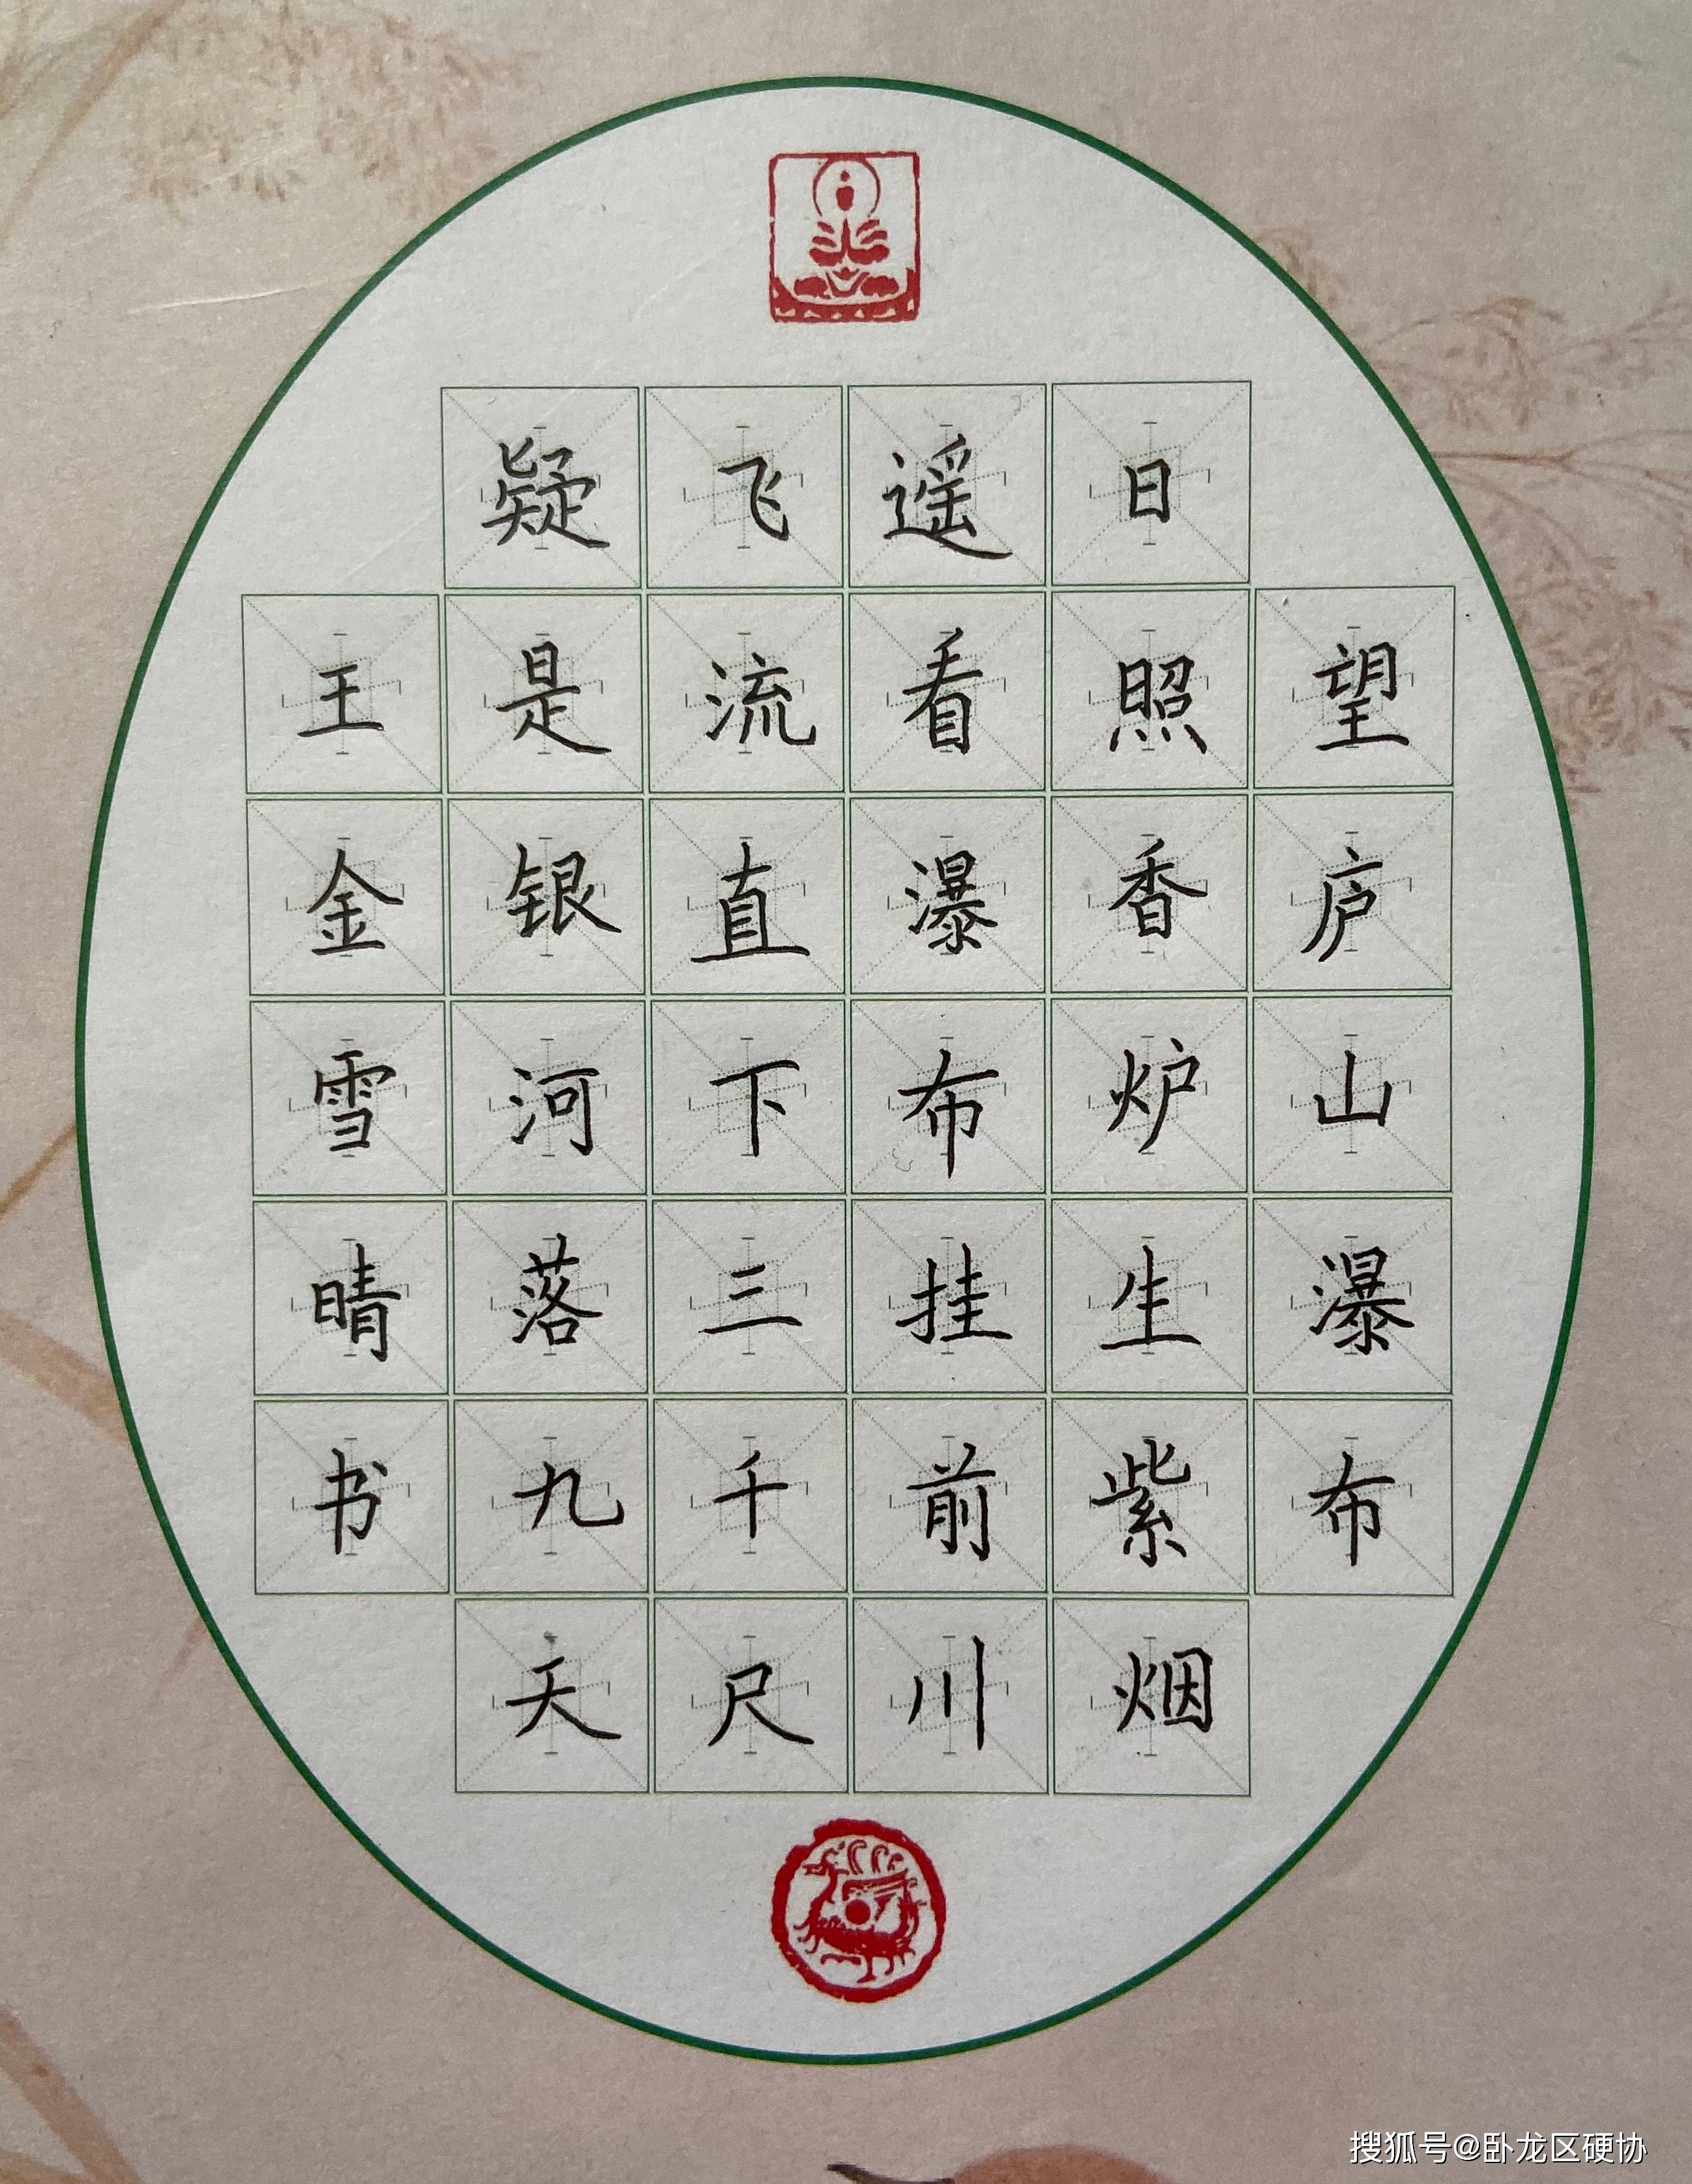 望庐山瀑布
日照香炉生紫烟
遥看瀑布挂前川
飞流直下三千尺
疑是银河落九天
王金雪晴书
搜狐号@卧龙区硬协